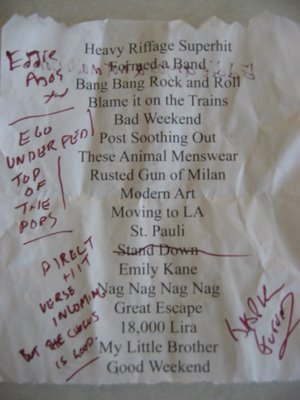 Heavy Riffage Superhit
Formed a Band
Bang Bang Rock and Roll
Blame it on the Trains
Bad Weekend
Post Soothing Out
These Animal Menswear
Rusted Gun of Milan
Modern Art
Moving to LA
St. Pauli
Stand Down
Emily Kane
Nag Nag Nag Nag
Great Escape
18,000 Lira
My Little Brother
Good Weekend
Eddie
Argos
x
EGO
UNDER FED
TOP
OF
THE
POPS
DIRECT
HIT
VERSE
INCOMING
BUT THE CHORUS
IS GOOD